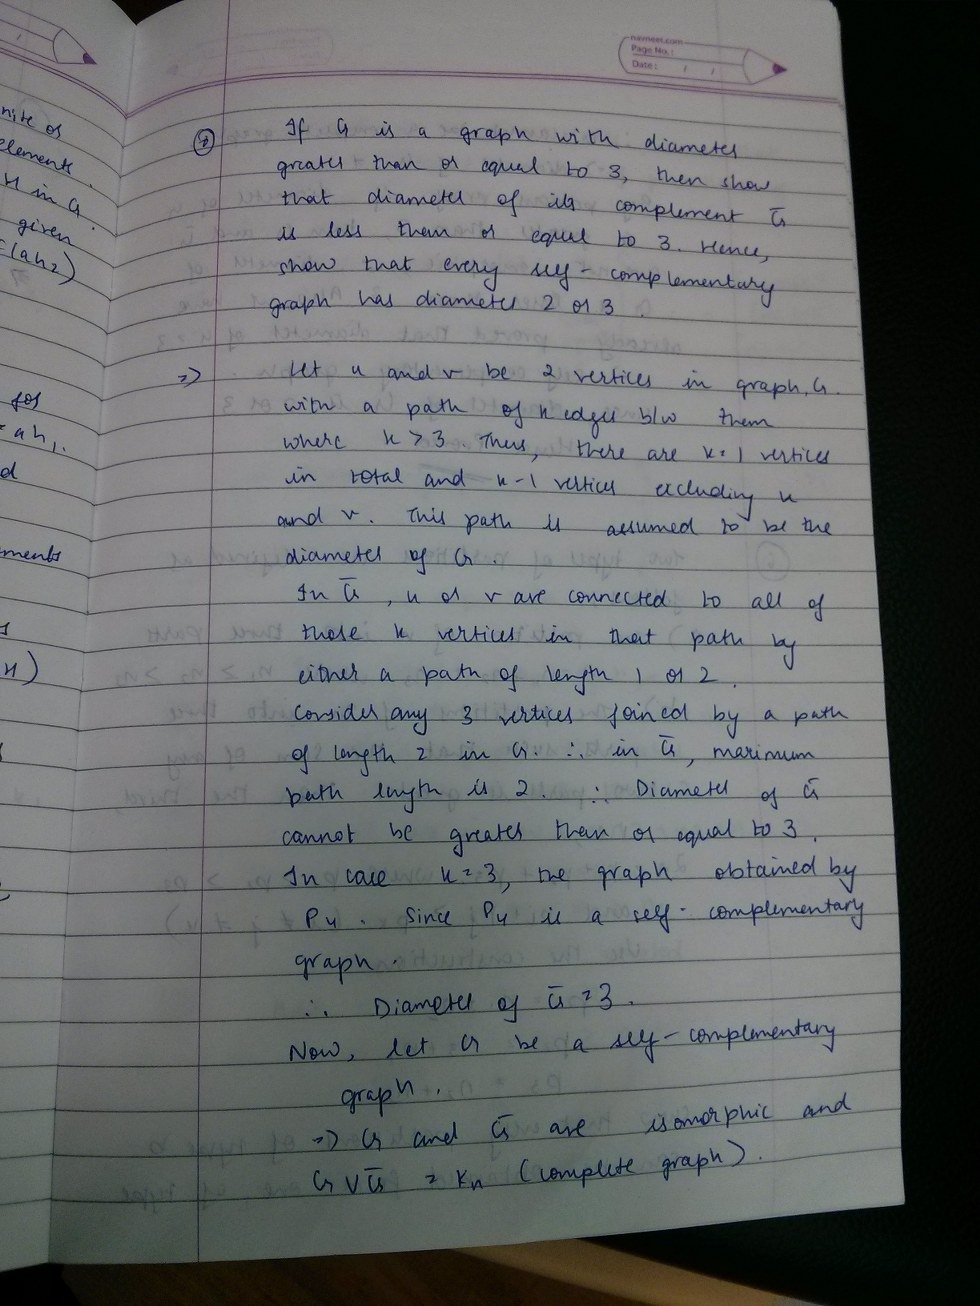 navneet.com
Page No.:
Date:
nite of
elements
H in G
given
=(ah2)
for
= ah1.
d
ments
H)
7
If G is a graph with diameter
greater than or equal to 3, then show
that diameter of its complement G̅
is less than or equal to 3. Hence,
show that every self-complementary
graph has diameter 2 or 3.
=> Let u and v be 2 vertices in graph, G.
with a path of k edges b/w them
where k > 3. Thus, there are k+1 vertices
in total and k-1 vertices excluding u
and v. This path is assumed to be the
diameter of G.
In G̅, u or v are connected to all of
those k vertices in that path by
either a path of length 1 or 2.
Consider any 3 vertices joined by a path
of length 2 in G. ∴ in G̅, maximum
path length is 2. ∴ Diameter of G̅
cannot be greater than or equal to 3.
In case k=3, the graph obtained by
P4. Since P4 is a self-complementary
graph.
∴ Diameter of G̅ = 3.
Now, let G be a self-complementary
graph.
=> G and G̅ are isomorphic and
G ∨ G̅ = Kn (complete graph).